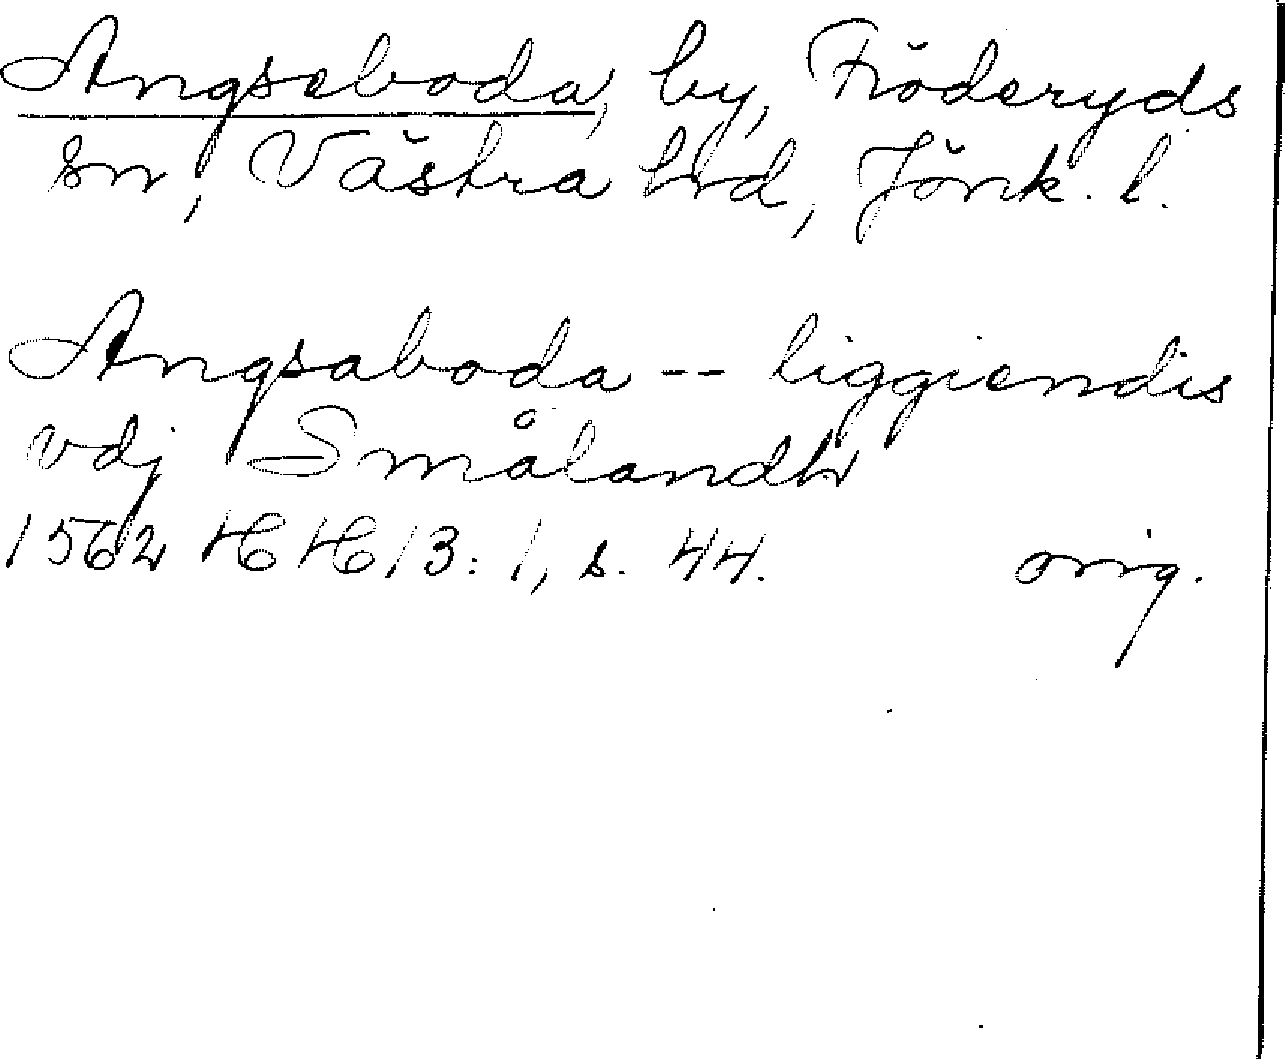 Angseboda, by, Fröderyds
sn, Västra hrd, Jönk. l.
Angsaboda -- liggiendis
vdj Smålandh
1562 HH 13:1, s. 44. orig.